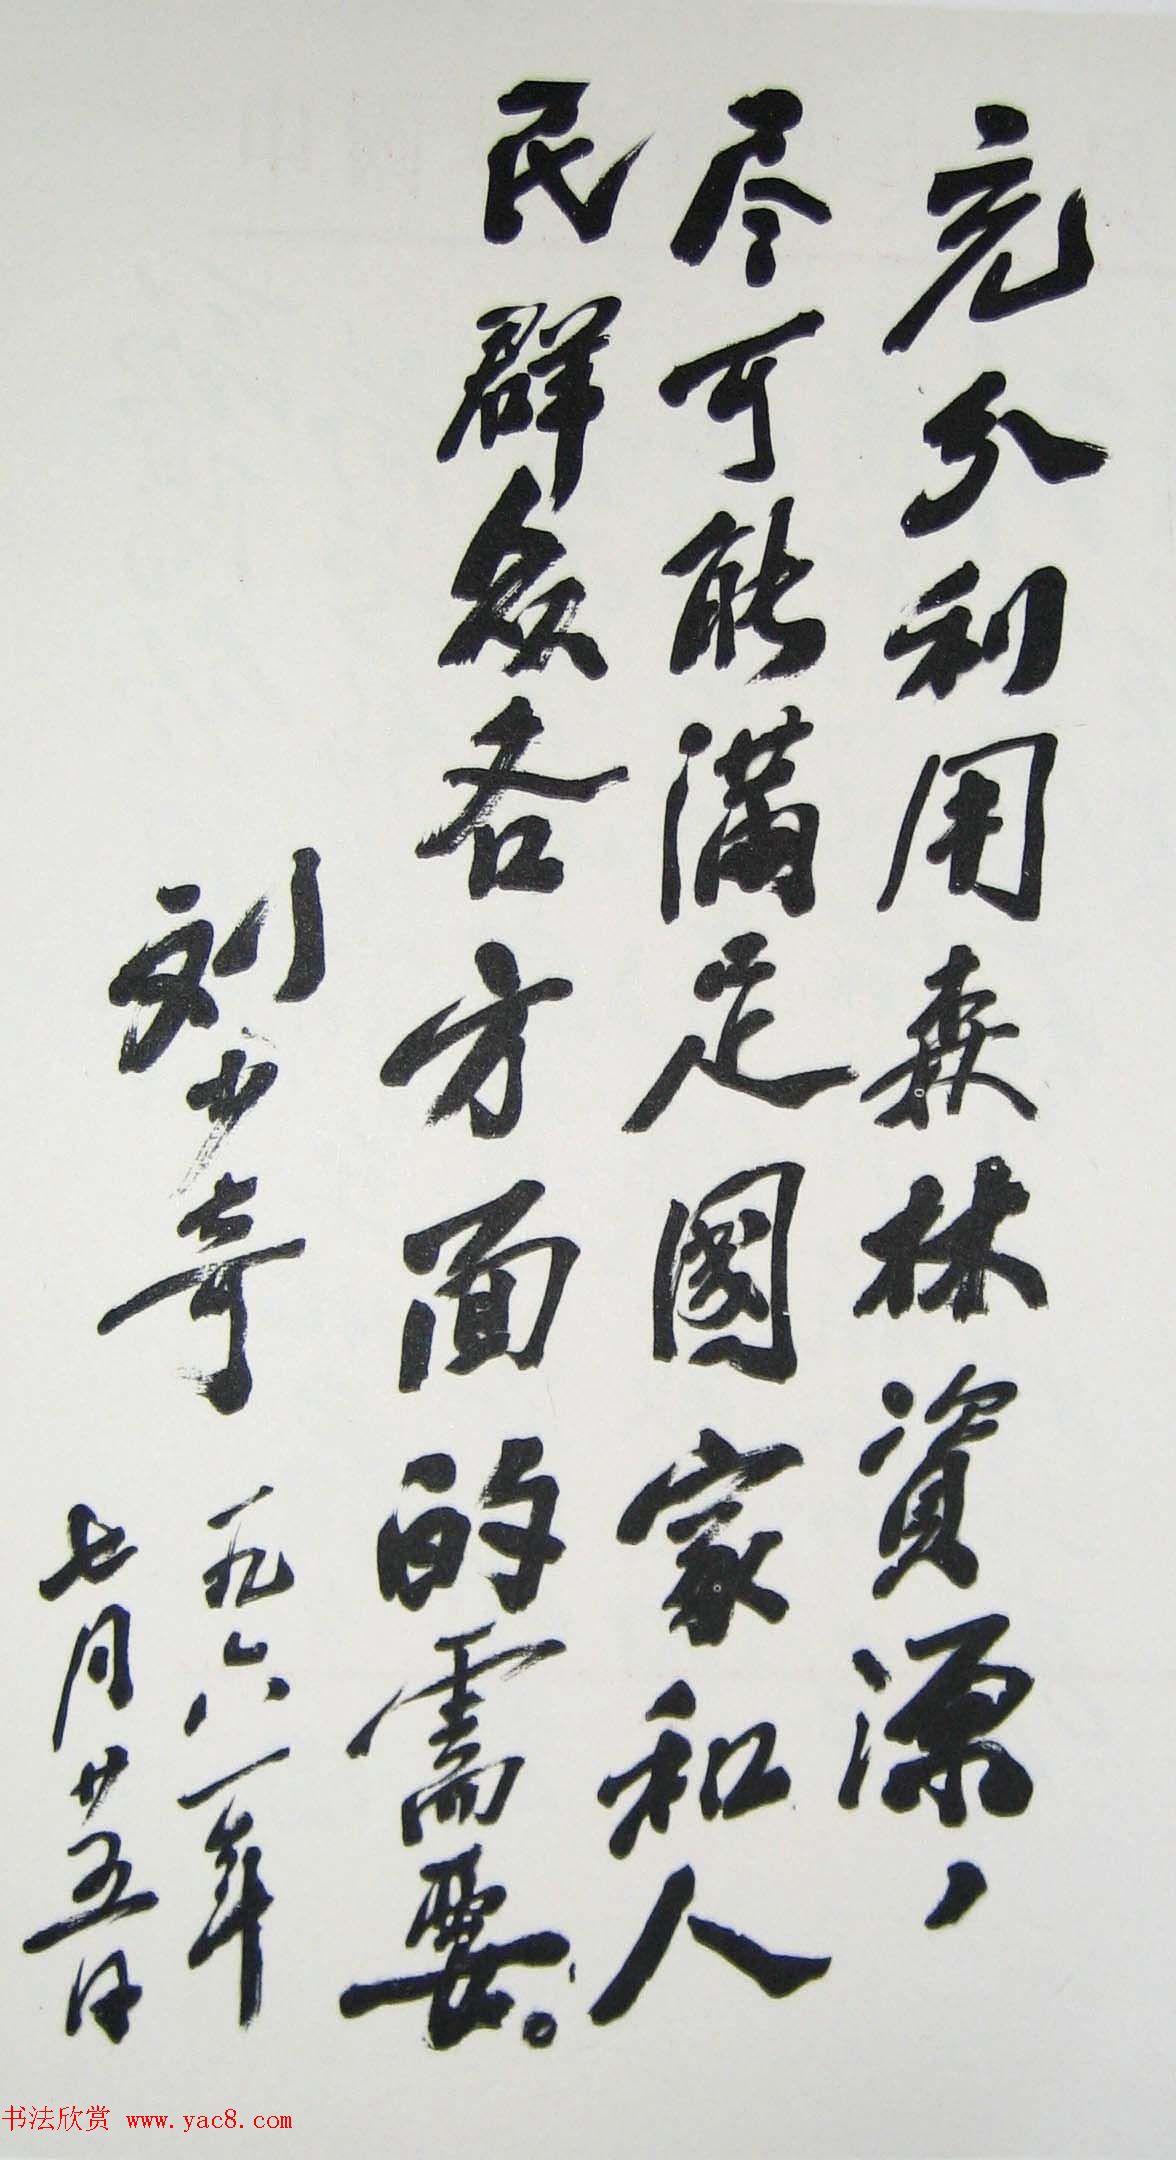 充分利用森林資源，
尽可能满足國家和人
民群众各方面的需要。
刘少奇
一九六一年
七月廿五日
书法欣赏 www.yac8.com